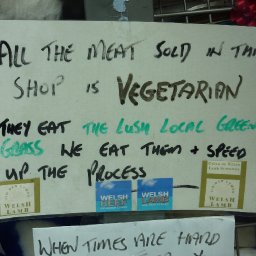 ALL THE MEAT SOLD IN THI
SHOP is VEGETARIAN
THEY EAT THE LUSH LOCAL GREEN
GRASS WE EAT THEM + SPEED
UP THE PROCESS
WELSH
LAMB
WELSH
BEEF
WELSH
LAMB
WELSH
LAMB
WHEN TIMES ARE HARD